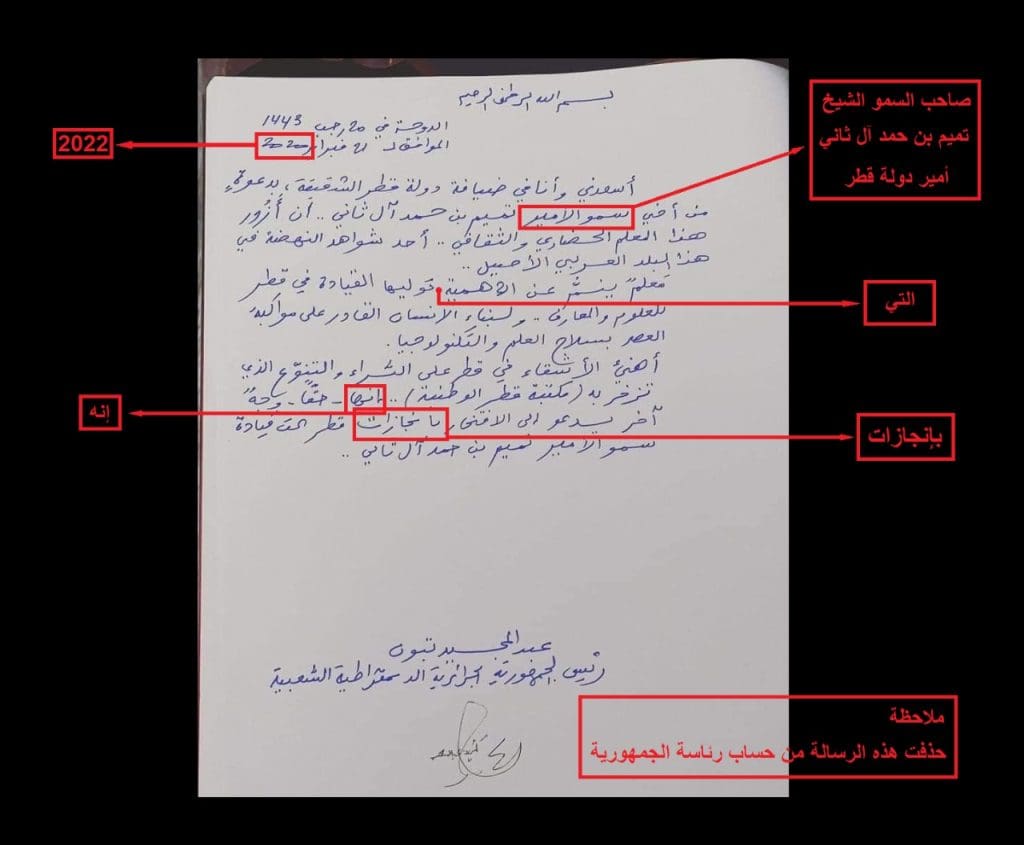 بسم الله الرحمن الرحيم
الدوحة في 20 رجب 1443
الموافق لـ 21 فبراير 2020
2022
صاحب السمو الشيخ
تميم بن حمد آل ثاني
أمير دولة قطر
أسعدني وأنا في ضيافة دولة قطر الشقيقة، بدعوةٍ
من أخي سمو الامير تميم بن حمد آل ثاني .. أن أزُور
هذا المعلم الحضاري والثقافي .. أحد شواهد النهضة في
هذا البلد العربي الأصيل ..
مَعلمٌ ينمُّ عن الأهمية توليها القيادة في قطر
التي
للعلوم والمعارف .. ولبناء الانسان القادر على مواكبة
العصر بسلاح العلم والتكنولوجيا.
أهنئ الأشقاء في قطر على الثراء والتنوّع الذي
تزخر به (مكتبة قطر الوطنية) .. انها - حقًا - وجهٌ
إنه
آخر يدعو الى الافتخار بانجازات قطر تحت قيادة
بإنجازات
سمو الأمير تميم بن حمد آل ثاني ..
عبد المجيد تبون
رئيس الجمهورية الجزائرية الديمقراطية الشعبية
ملاحظة
حذفت هذه الرسالة من حساب رئاسة الجمهورية